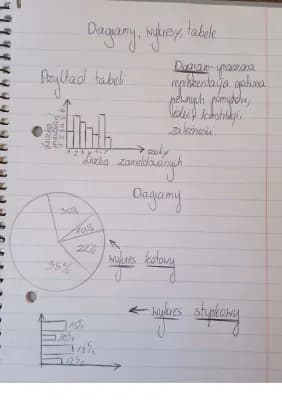 Diagramy, wykresy, tabele
Przykład tabeli
Diagram - uproszczona
reprezentacja graficzna
pewnych pomysłów,
konstrukcji,
zależności.
osoby
Liczba zameldowanych
Diagramy
30%
10%
22%
38%
wykres kołowy
wykres słupkowy
10%